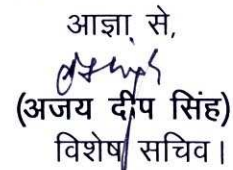 आज्ञा से,
(अजय दीप सिंह)
विशेष सचिव।